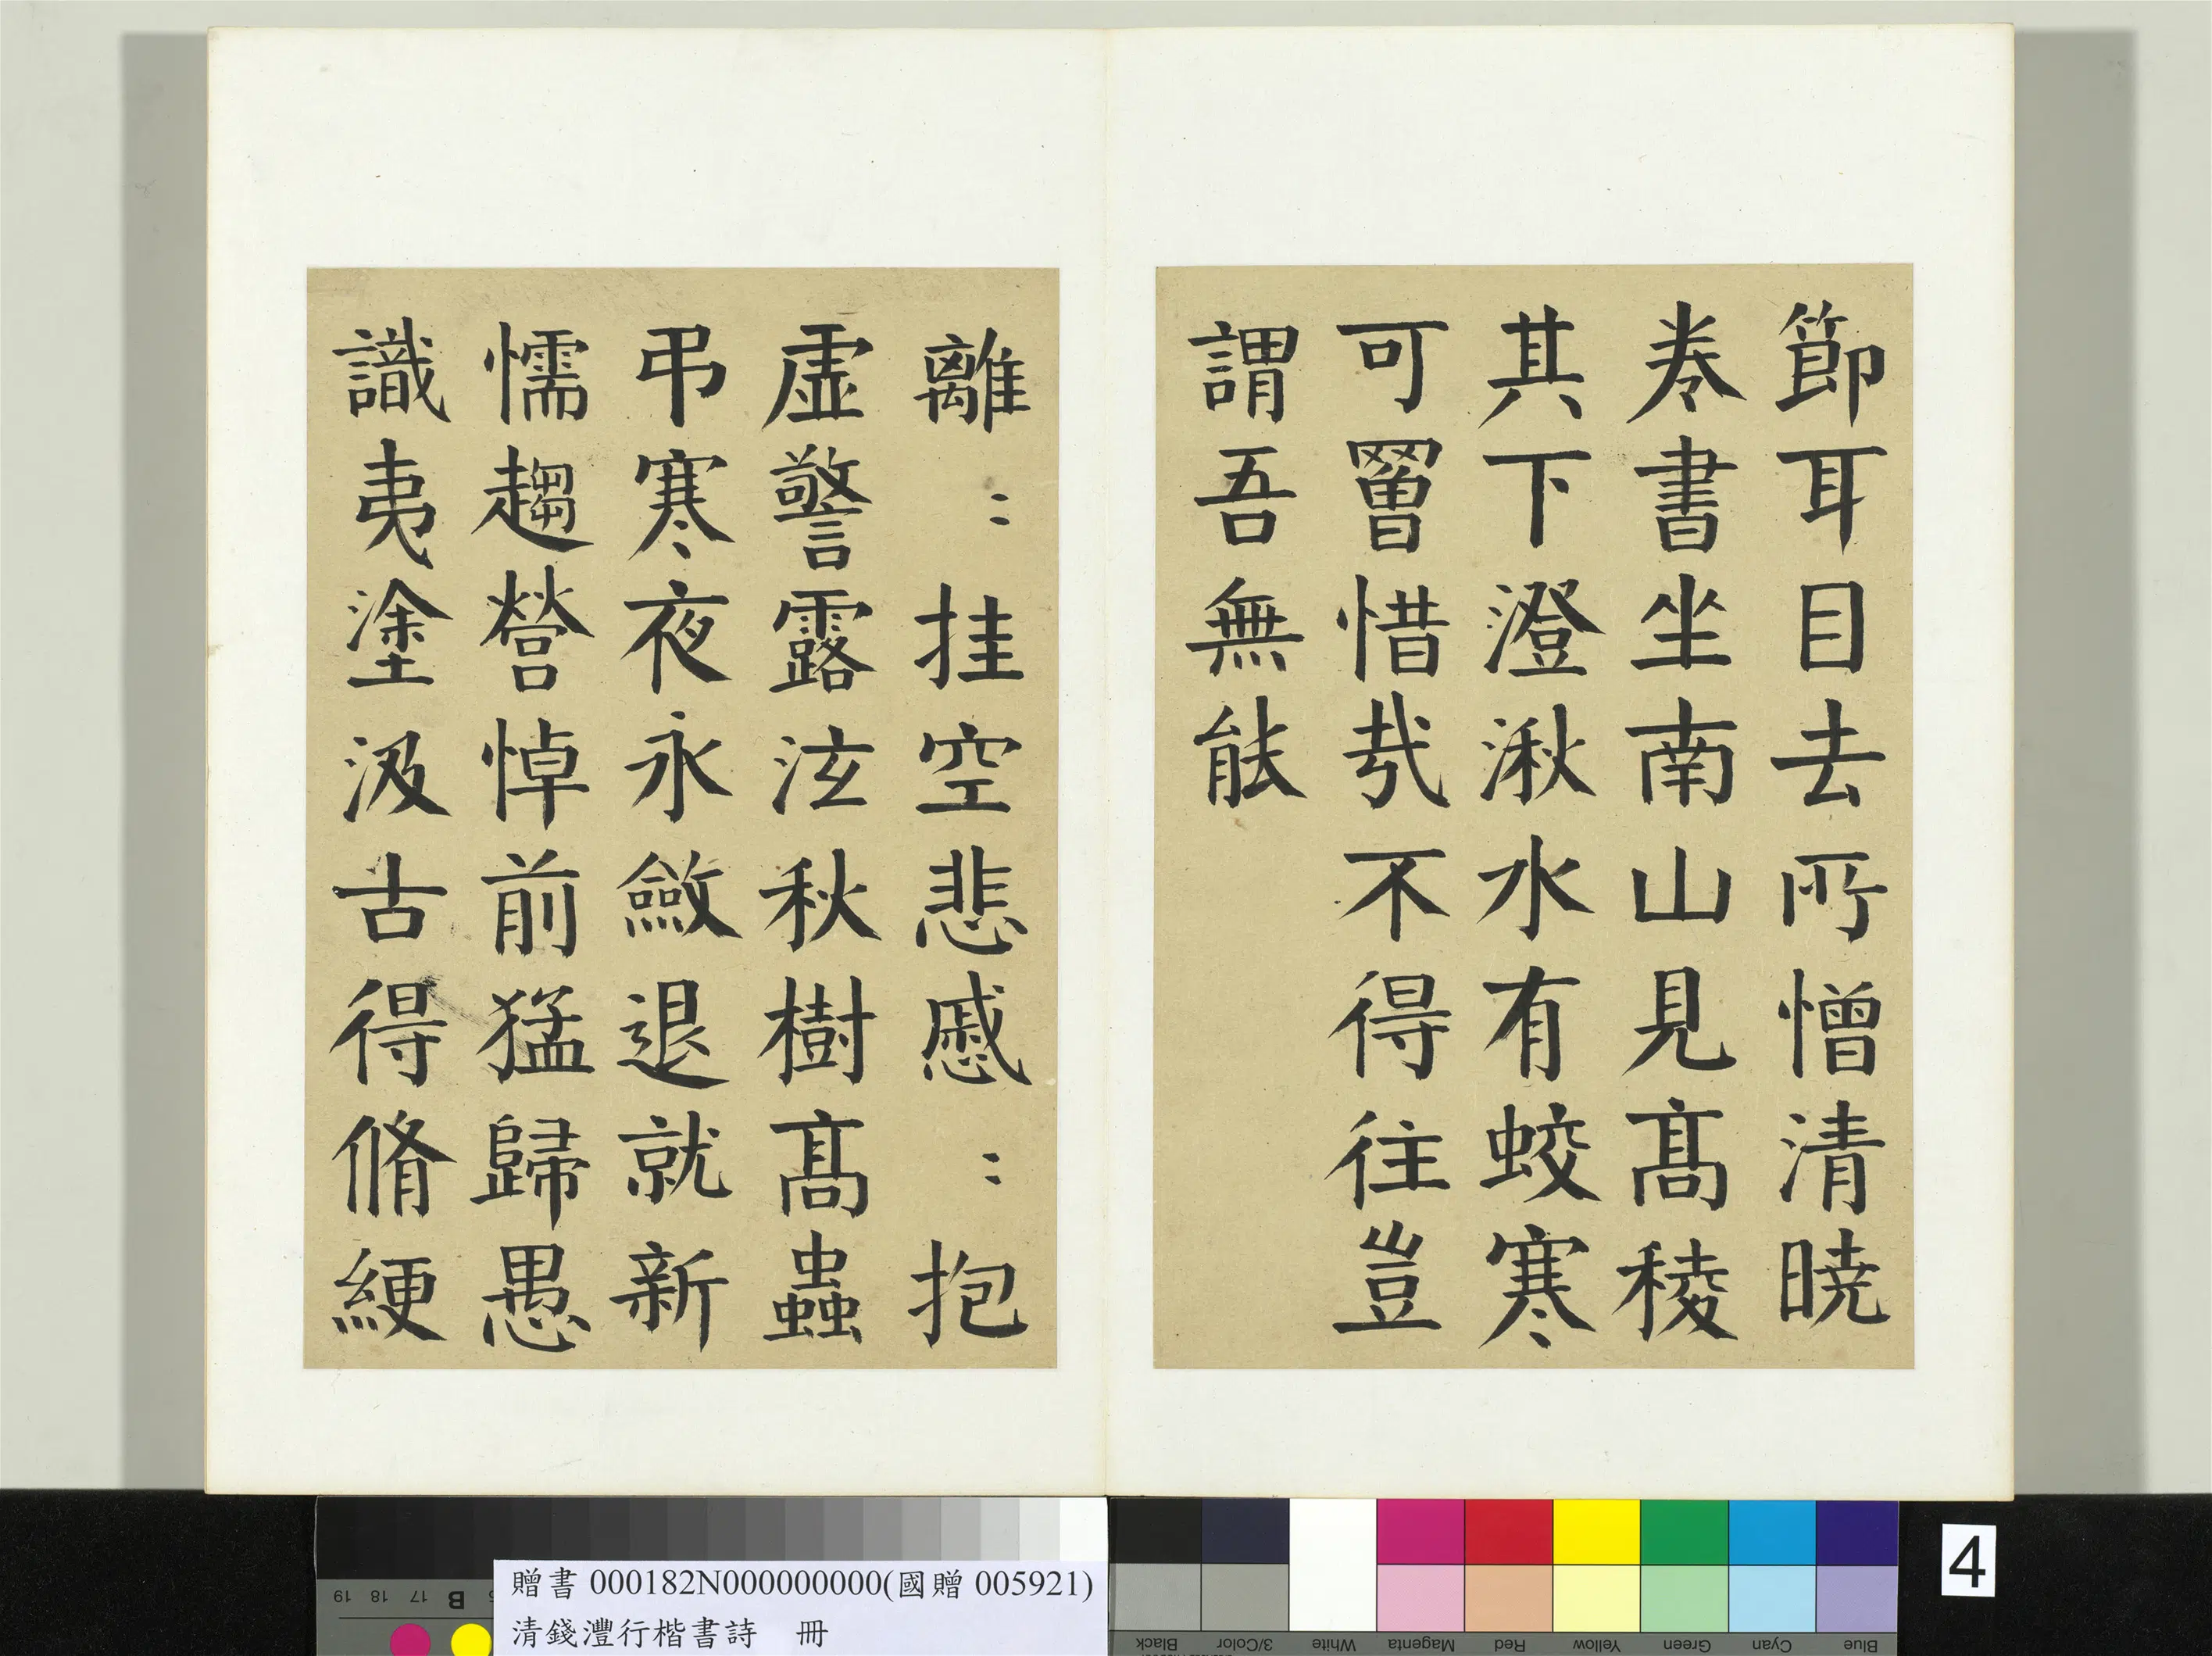 節耳目去所憎清曉
卷書坐南山見髙稜
其下澄湫水有蛟寒
可罾惜哉不得往豈
謂吾無能
離〻挂空悲慼〻抱
虛警露泫秋樹髙蟲
弔寒夜永斂退就新
懦趨營悼前猛歸愚
識夷塗汲古得脩綆
贈書 000182N000000000(國贈 005921)
清錢灃行楷書詩 冊
4
19 18 17 B
Black 3/Color White Magenta Red Yellow Green Cyan Blue